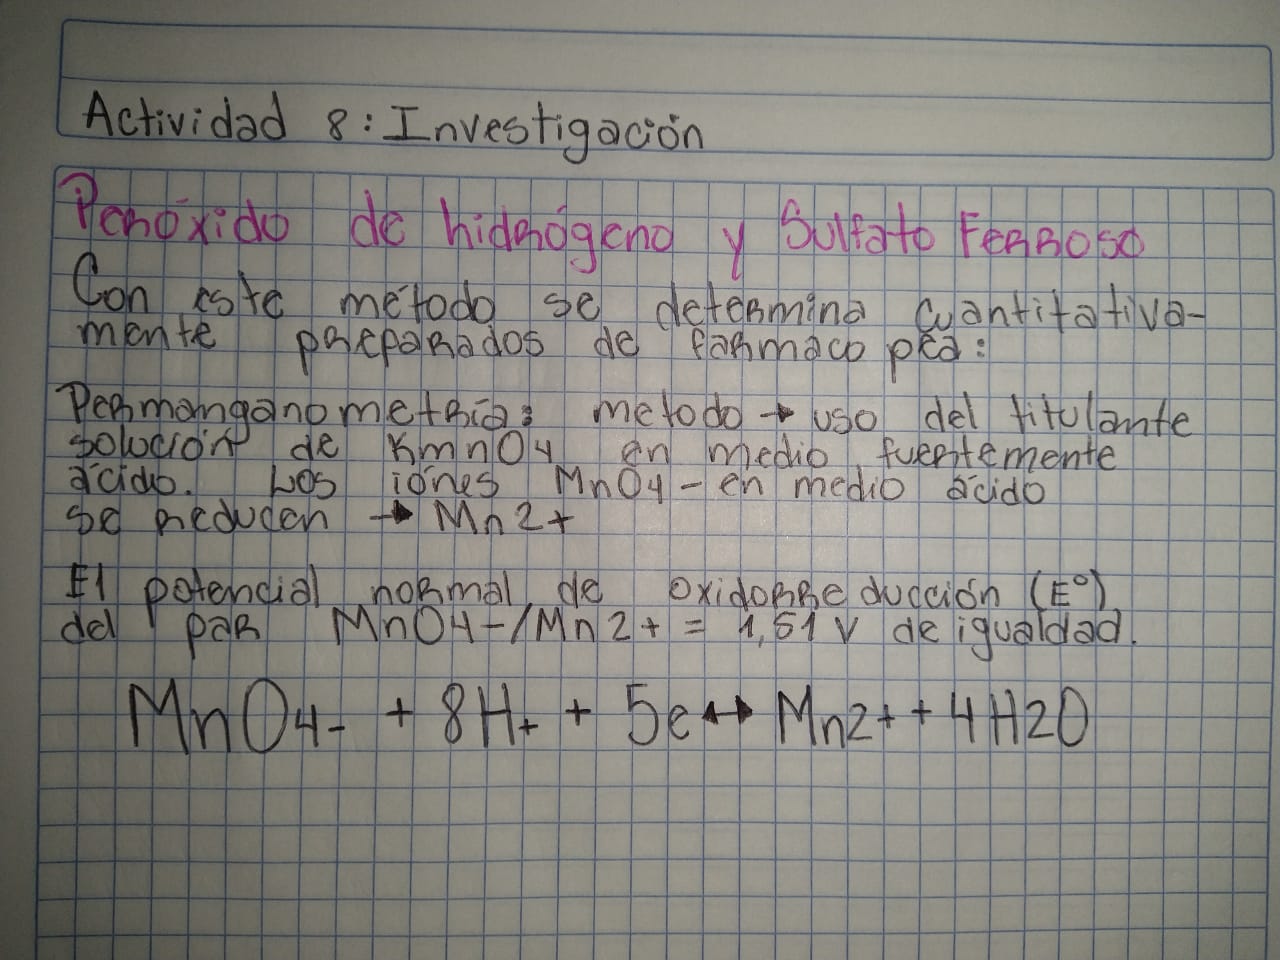 Actividad 8: Investigación
Peróxido de hidrógeno y Sulfato Ferroso
Con este método se determina cuantitativa-
mente preparados de farmaco pea:
Permanganometría: metodo → uso del titulante
solución de KmnO4 en medio fuertemente
ácido. Los iónes MnO4- en medio ácido
se reducen → Mn2+
El potencial normal de oxidorreducción (E°)
del par MnO4-/Mn2+ = 1,51 V de igualdad.
MnO4- + 8H+ + 5e ↔ Mn2+ + 4H2O